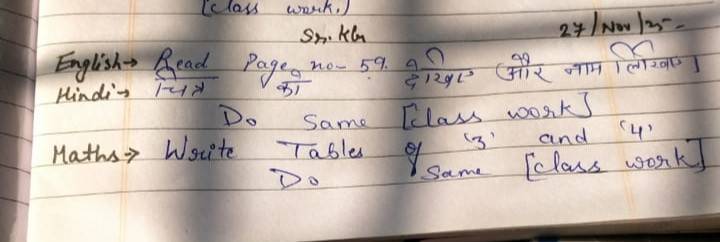 [class work.]
Sr. KG
27/Nov/25
English→ Read Page no- 59.
Hindi→ चित्र को देखिए और नाम लिखिए।
Do Same [class work]
Maths→ Write Tables of '3' and '4'
Do Same [class work]